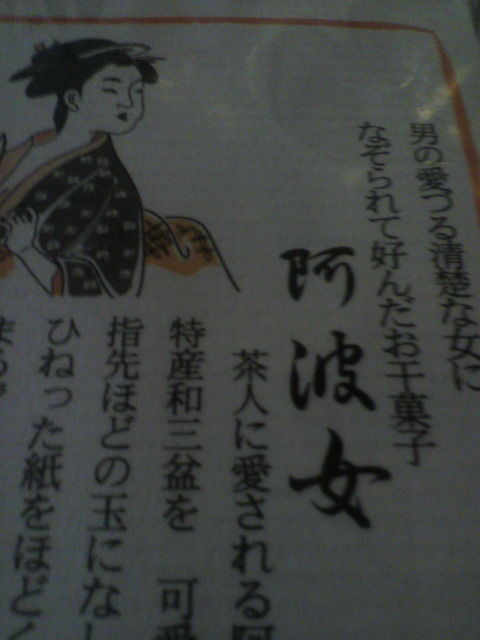 男の愛づる清楚な女に
なぞられて好んだお干菓子
阿波女
茶人に愛される阿
特産和三盆を 可愛
指先ほどの玉になし
ひねった紙をほどく
まろ